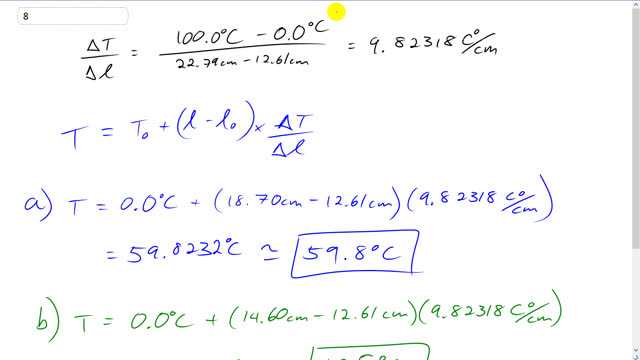 8
ΔT/Δl = (100.0°C − 0.0°C)/(22.79cm − 12.61cm) = 9.82318 C°/cm
T = T₀ + (l − l₀) × ΔT/Δl
a) T = 0.0°C + (18.70cm − 12.61cm)(9.82318 C°/cm)
= 59.8232°C ≃ 59.8°C
b) T = 0.0°C + (14.60cm − 12.61cm)(9.82318 C°/cm)